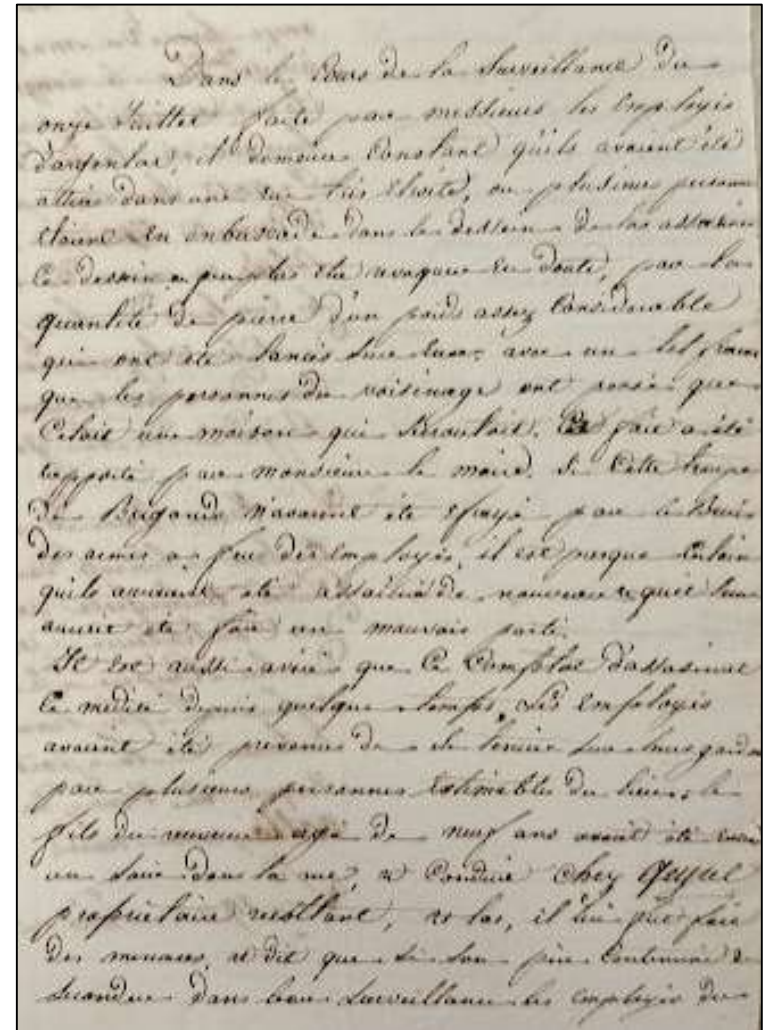 Dans le Cours de la Surveillance Du
onze Juillet faite par messieurs les Employés
d'argentac, il demeure Constant qu'ils avaient été
attirés dans une rue très Etroite, ou plusieurs personnes
étaient En enbuscade dans le dessein de les assassiner
Ce dessein ne peut etre revoquer En Doute, par la
quantité de pierre d'un poids assez Considerable
qui ont été lancés sur Eux, avec un tel
que les personnes du voisinage ont pensé que
C'etoit une maison qui Sécroulait. Ce fait a été
rapporté par monsieur le maire. Si Cette troupe
de Brigands n'avaient été éfrayé par le Bruit
des armes a feu des Employés, il est presque Certain
qu'ils auraient été de nouveau et qu'il leur
auroit été fait un mauvais parti.
Il Est aussi avéré que Ce Complot D'assasinat
Ce medité depuis quelque temps, Les Employés
avaient été prevenus de se tenir sur leurs gardes
par plusieurs personnes Estimables du lieu, le
fils du receveur agé de neuf ans avait été
un Soir dans la rue, et Conduit Chez
propriétaire, et la, il lui fut fait
Des menaces, et dit que Si Son père Continuoit de
Seconder dans leur Surveillance les employés des